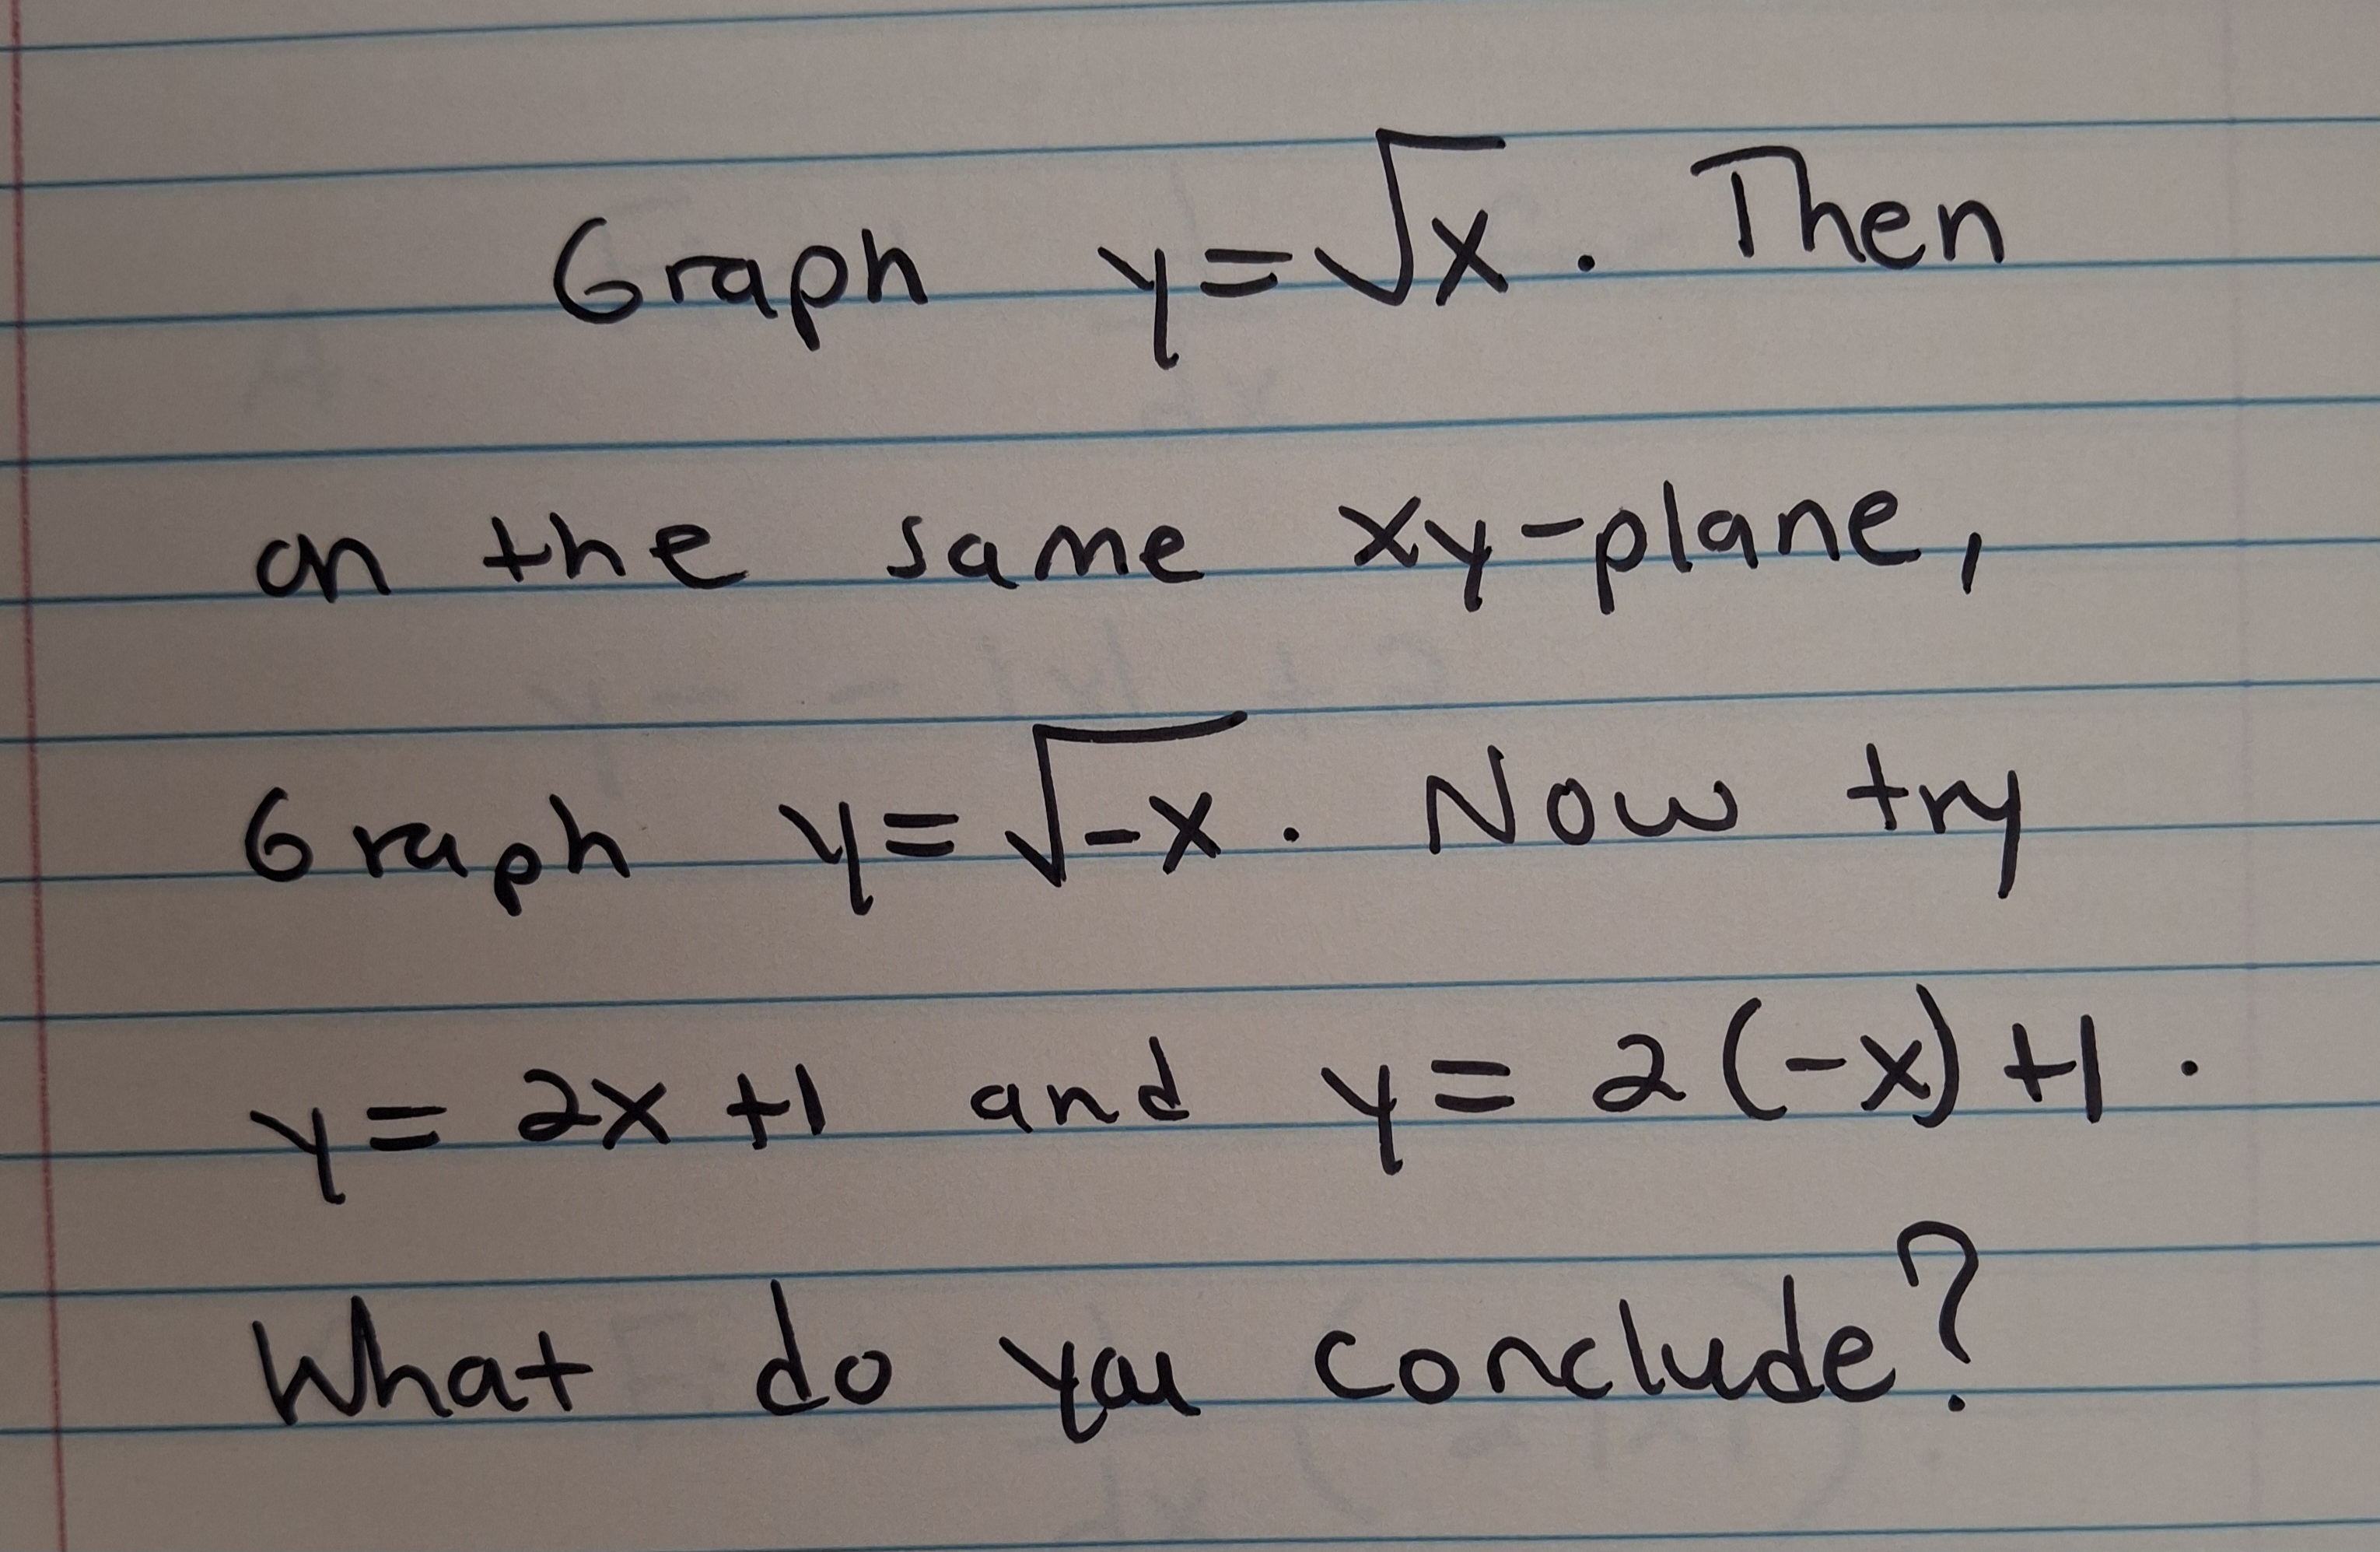 Graph y=√x. Then
on the same xy-plane,
Graph y=√-x. Now try
y= 2x+1 and y= 2(-x)+1.
What do you conclude?